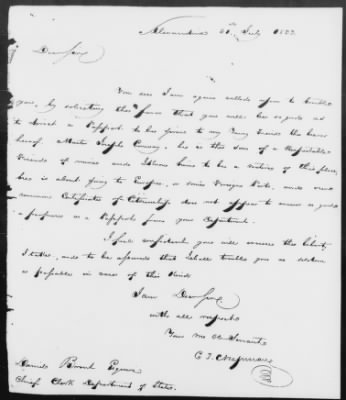 Alexandria 20th July 1822
Dear Sir,
You see I am again called upon to trouble
you, by soliciting the favor that you will be so good as
to direct a Passport to be given to my young Friend the bearer
hereof, Master Joseph he is the son of a Respectable
Friend of mine and known to be a native of this place,
he is about going to Europe, or some Foreign Port, and our
common Certificates of Citizenship does not appear to answer as good
a purpose as a Passport from your Department.
I feel confident you will excuse the liberty
I take, and to be assured that I shall trouble you as seldom
as possible in cases of this kind
I am Dear Sir
with all respect
Your Mo Ob Servant
Daniel Brent Esquire
Chief Clerk Department of State.